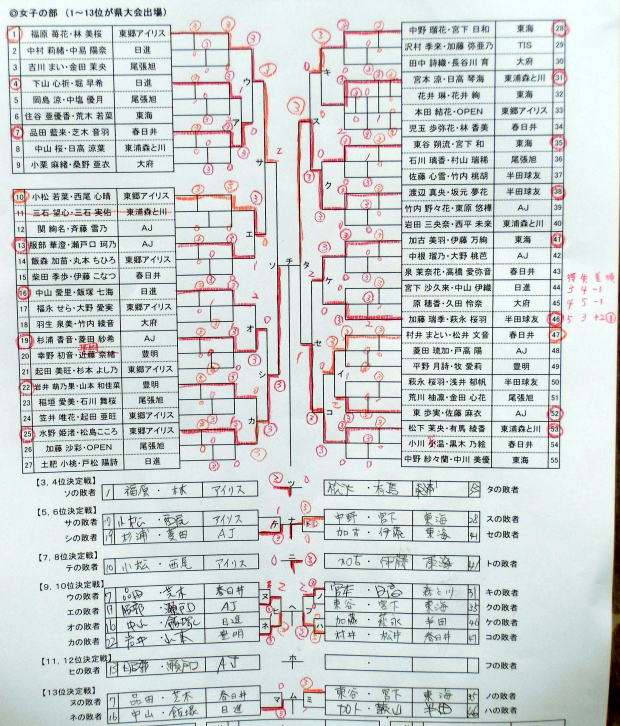 ◎女子の部 （1～13位が県大会出場）
1 福原 苺花・林 美桜 東郷アイリス
2 中村 莉緒・中易 陽奈 日進
3 吉川 まい・金田 茉央 尾張旭
4 下山 心祈・堀 早希 日進
5 岡島 涼・中塩 優月 尾張旭
6 住谷 亜優香・荒木 若菜 東海
7 品田 藍来・芝木 音羽 春日井
8 中山 桜・日高 涼葉 東浦森と川
9 小栗 麻緒・桑野 亜衣 大府
10 小松 若菜・西尾 心晴 東郷アイリス
11 三石 望心・三石 実佑 東浦森と川
12 関 絢名・斉藤 雪乃 AJ
13 服部 華澄・瀬戸口 珂乃 AJ
14 飯森 加苗・丸本 ちひろ 東郷アイリス
15 柴田 季歩・伊藤 こなつ 春日井
16 中山 愛里・飯塚 七海 日進
17 福永 せら・大野 愛実 東郷アイリス
18 羽生 泉美・竹内 綾音 大府
19 杉浦 香音・菱田 紗希 AJ
20 幸野 初音・近藤 奈緒 豊明
21 起田 美旺・杉本 よし乃 東郷アイリス
22 岩井 萌乃果・山本 和佳菜 豊明
23 稲垣 愛美・石川 舞桜 尾張旭
24 笠井 唯花・起田 亜旺 東郷アイリス
25 水野 姫渚・松島こころ 東郷アイリス
26 加藤 沙彩・OPEN 尾張旭
27 土肥 小桃・戸松 陽詩 日進
中野 瑠花・宮下 日和 東海 28
沢村 季来・加藤 弥亜乃 TIS 29
田中 詩織・長谷川 育 大府 30
宮本 涼・日高 琴海 東浦森と川 31
花井 琳・花井 絢 東海 32
本田 結花・OPEN 東郷アイリス 33
児玉 歩弥花・林 香美 春日井 34
東谷 朔流・宮下 和 東海 35
石川 瑞香・村山 瑞稀 尾張旭 36
佐藤 心雪・竹内 桃胡 半田球友 37
渡辺 真央・坂元 夢花 半田球友 38
竹内 野々花・東原 悠樺 AJ 39
岩田 三央奈・西平 未来 東浦森と川 40
加古 美羽・伊藤 万絢 東海 41
中根 瑠乃・大野 桃芭 AJ 42
泉 茉奈花・高橋 愛弥音 春日井 43
宮下 紗久来・中山 伊織 日進 44
原 穂香・久田 怜奈 大府 45
加藤 瑞季・萩永 桜羽 半田球友 46
村井 まとい・松井 文音 春日井 47
菱田 琉加・戸高 陽 AJ 48
平野 月詩・牧 愛莉 豊明 49
萩永 桜羽・浅井 郁帆 半田球友 50
荒川 柚凛・金田 心花 尾張旭 51
東 歩実・佐藤 麻衣 AJ 52
松下 茉央・有馬 綾香 東浦森と川 53
小川 温・黒木 乃絵 春日井 54
中野 紗々蘭・中川 美優 東海 55
【3, 4位決定戦】
ソの敗者 1 福原・林 アイリス ツ 松下・有馬 タの敗者
【5, 6位決定戦】
サの敗者 10 小松・西尾 アイリス テ ナ ト 中野・宮下 東海 28 スの敗者
シの敗者 19 杉浦・菱田 AJ 加古・伊藤 東海 41 セの敗者
【7, 8位決定戦】
テの敗者 10 小松・西尾 アイリス ニ 加古・伊藤 東海 41 トの敗者
【9, 10位決定戦】
ウの敗者 7 品田・芝木 春日井 ヌ ノ 宮本・日高 森と川 31 キの敗者
エの敗者 13 服部・瀬戸口 AJ ヒ ヘ フ 東谷・宮下 東海 35 クの敗者
オの敗者 16 中山・飯塚 日進 ネ ハ 加藤・萩永 半田 46 ケの敗者
カの敗者 22 岩井・山本 豊明 村井・松井 春日井 47 コの敗者
【11, 12位決定戦】
ヒの敗者 13 服部・瀬戸口 AJ ホ フの敗者
【13位決定戦】
ヌの敗者 7 品田・芝木 春日井 マ ム ミ 東谷・宮下 東海 35 ノの敗者
ネの敗者 16 中山・飯塚 日進 半田 46 ハの敗者